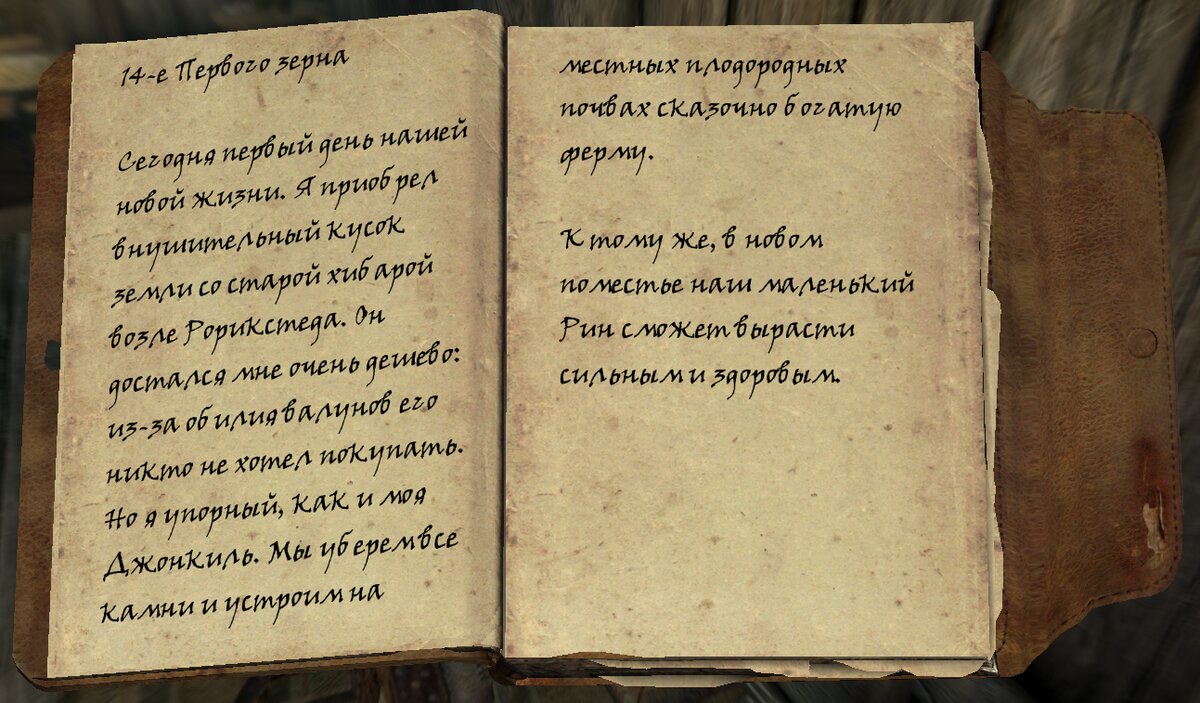 14-е Первого зерна
Сегодня первый день нашей
новой жизни. Я приобрел
внушительный кусок
земли со старой хибарой
возле Рорикстеда. Он
достался мне очень дешево:
из-за обилия валунов его
никто не хотел покупать.
Но я упорный, как и моя
Джонкиль. Мы уберем все
камни и устроим на
местных плодородных
почвах сказочно богатую
ферму.
К тому же, в новом
поместье наш маленький
Рин сможет вырасти
сильным и здоровым.